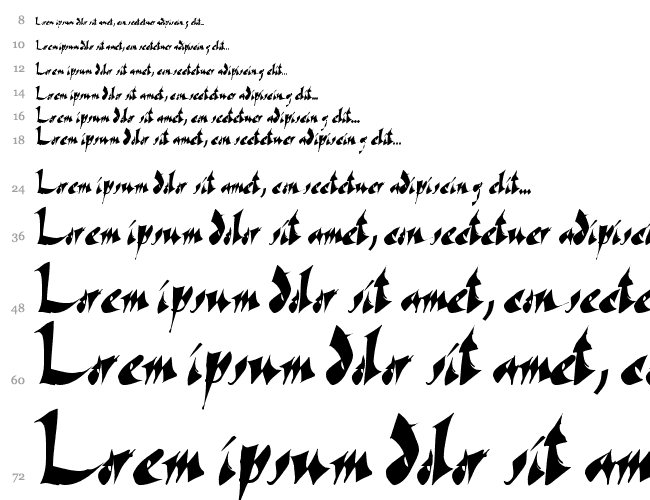 8 Lorem ipsum dolor sit amet, con sectetuer adipiscin g elit...
10 Lorem ipsum dolor sit amet, con sectetuer adipiscin g elit...
12 Lorem ipsum dolor sit amet, con sectetuer adipiscin g elit...
14 Lorem ipsum dolor sit amet, con sectetuer adipiscin g elit...
16 Lorem ipsum dolor sit amet, con sectetuer adipiscin g elit...
18 Lorem ipsum dolor sit amet, con sectetuer adipiscin g elit...
24 Lorem ipsum dolor sit amet, con sectetuer adipiscin g elit...
36 Lorem ipsum dolor sit amet, con sectetuer adipisci
48 Lorem ipsum dolor sit amet, con secte
60 Lorem ipsum dolor sit amet, c
72 Lorem ipsum dolor sit am